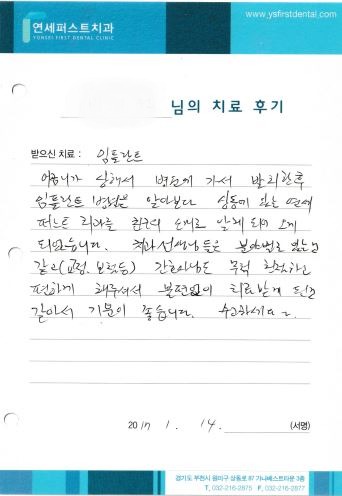 연세퍼스트치과
YONSEI FIRST DENTAL CLINIC
www.ysfirstdental.com
님의 치료 후기
받으신 치료 : 임플란트
어금니가 상해서 병원에 가서 발치한후
임플란트 병원은 알아보다 상동에 있는 연세
퍼스트 치과를 친구의 소개로 알게 되어 오게
되었습니다. 치과선생님들은 분야별로 있는것
같고(교정, 보철등) 간호사님도 무척 친절하고
편하게 해주셔서 불편없이 치료받게 된것
같아서 기분이 좋습니다. 수고하세요
2017 1. 14. (서명)
경기도 부천시 원미구 상동로 87 가나베스트타운 3층
T. 032-216-2875 F. 032-216-2877